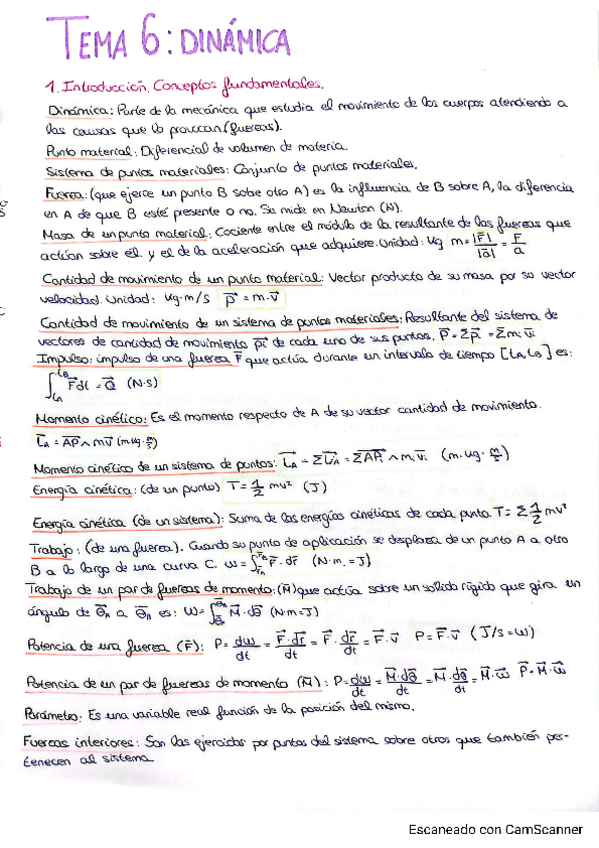 TEMA 6: DINÁMICA
1. Introducción, Conceptos fundamentales.
Dinámica: Parte de la mecánica que estudia el movimiento de los cuerpos atendiendo a
las causas que lo provocan (fuerzas).
Punto material: Diferencial de volumen de materia.
Sistema de puntos materiales: Conjunto de puntos materiales.
Fuerza: (que ejerce un punto B sobre otro A) es la influencia de B sobre A, la diferencia
en A de que B esté presente o no. Se mide en Newton (N).
Masa de un punto material: Cociente entre el módulo de la resultante de las fuerzas que
actúan sobre él y el de la aceleración que adquiere. Unidad: kg m = |F⃗|/|a⃗| = F/a
Cantidad de movimiento de un punto material: Vector producto de su masa por su vector
velocidad. Unidad: kg·m/s p⃗ = m·v⃗
Cantidad de movimiento de un sistema de puntos materiales: Resultante del sistema de
vectores de cantidad de movimiento p⃗i de cada uno de sus puntos. P⃗ = Σp⃗i = Σmi v⃗i
Impulso: impulso de una fuerza F⃗ que actúa durante un intervalo de tiempo [tA, tB] es:
∫tA^tB F⃗dt = Q⃗ (N·s)
Momento cinético: Es el momento respecto de A de su vector cantidad de movimiento.
L⃗A = AP⃗ ∧ mv⃗ (m·kg·m/s)
Momento cinético de un sistema de puntos: L⃗A = ΣL⃗iA = ΣAP⃗i ∧ mi v⃗i (m·kg·m/s)
Energía cinética: (de un punto) T = 1/2 mv² (J)
Energía cinética (de un sistema): Suma de las energías cinéticas de cada punto T = Σ 1/2 mv²
Trabajo: (de una fuerza). Cuando su punto de aplicación se desplaza de un punto A a otro
B a lo largo de una curva C. W = ∫rA^rB F⃗·dr⃗ (N·m = J)
Trabajo de un par de fuerzas de momento: (M⃗) que actúa sobre un sólido rígido que gira un
ángulo de θ⃗A a θ⃗B es: W = ∫θA^θB M⃗·dθ⃗ (N·m = J)
Potencia de una fuerza (F⃗): P = dw/dt = F⃗·dr⃗/dt = F⃗·dr⃗/dt = F⃗·v⃗ P = F⃗·v⃗ (J/s = W)
Potencia de un par de fuerzas de momento (M⃗): P = dw/dt = M⃗·dθ⃗/dt = M⃗·dθ⃗/dt = M⃗·ω⃗ P = M⃗·ω⃗
Parámetro: Es una variable real función de la posición del mismo.
Fuerzas interiores: Son las ejercidas por puntos del sistema sobre otros que también per-
tenecen al sistema
Escaneado con CamScanner